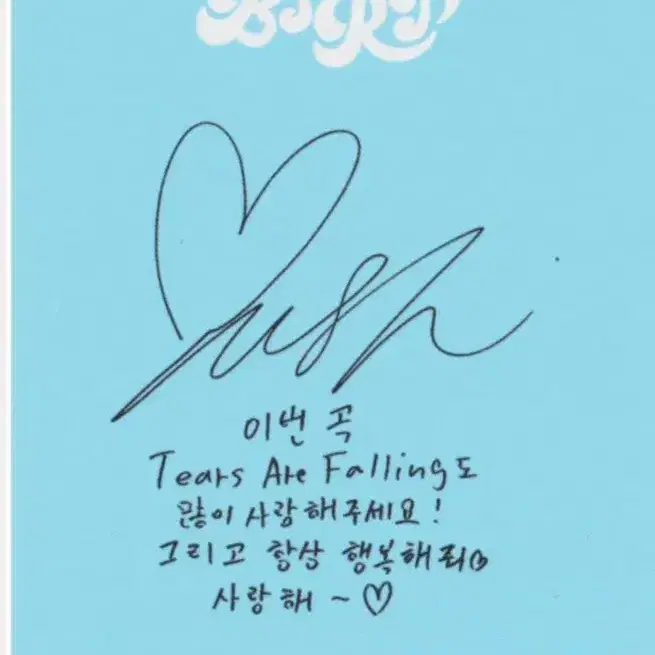 이번 곡
Tears Are Falling도
많이 사랑해주세요!
그리고 항상 행복해죄♡
사랑해 ~ ♡